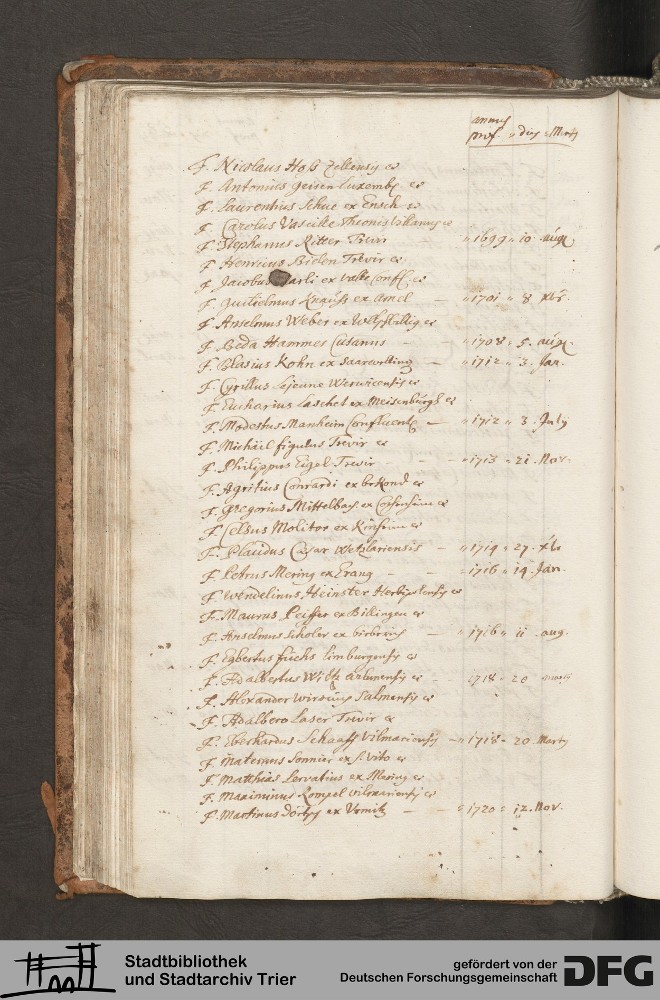 annus
prof. " dies " Mens
F. Nicolaus Hoss Zellensis et
F. Antonius Geisen Luxemb. et
F. Laurentius Schue ex Ensch et
F. Carolus Theonis Villanus et
F. Stephanus Ritter Trevir " 1699 " 10 . aug.
F. Henricus Bielen Trevir et
F. Jacobus ex valle Confl. et
F. Guilielmus ex Amel — " 1701 " 8 xbr.
F. Anselmus Weber ex et
F. Beda Hammes Cusanus — — " 1708 " 5. aug.
F. Blasius Kohn ex — " 1712 " 3 . Jan.
F. Cyrillus Lejeune et
F. Eucharius Laschet ex Meisenburgh et
F. Modestus Manheim Confluent. — " 1712 " 3 . July
F. Michael figulus Trevir et
F. Philippus Eigel Trevir — — " 1713 " 21. Nov.
F. Agritius Conrardi ex bekond et
F. Gregorius Mittelbach ex et
F. Celsus Molitor ex et
F. Placidus Wetzlariensis — " 1714 " 27 . xb
F. Petrus Mering ex Erang — — " 1716 " 14 . Jan.
F. Wendelinus Heinster et
F. Maurus Peiffer ex Billingen et
F. Anselmus Scholer ex — " 1716 " 11 . aug.
F. Egbertus fuchs Limburgensis et
F. Adalbertus Wiltz et — " 1718 " 20
F. Alexander Salmensis et
F. Adalbero Laser Trevir et
F. Eberhardus Schaaff Vilmariensis — " 1718 " 20 Marty
F. Maternus Sonnier ex S. Vito et
F. Matthias Servatius ex et
F. Maximinus Kompel vilmariensis et
F. Martinus ex — — " 1720 " 12. Nov.
Stadtbibliothek
und Stadtarchiv Trier
gefördert von der
Deutschen Forschungsgemeinschaft
DFG